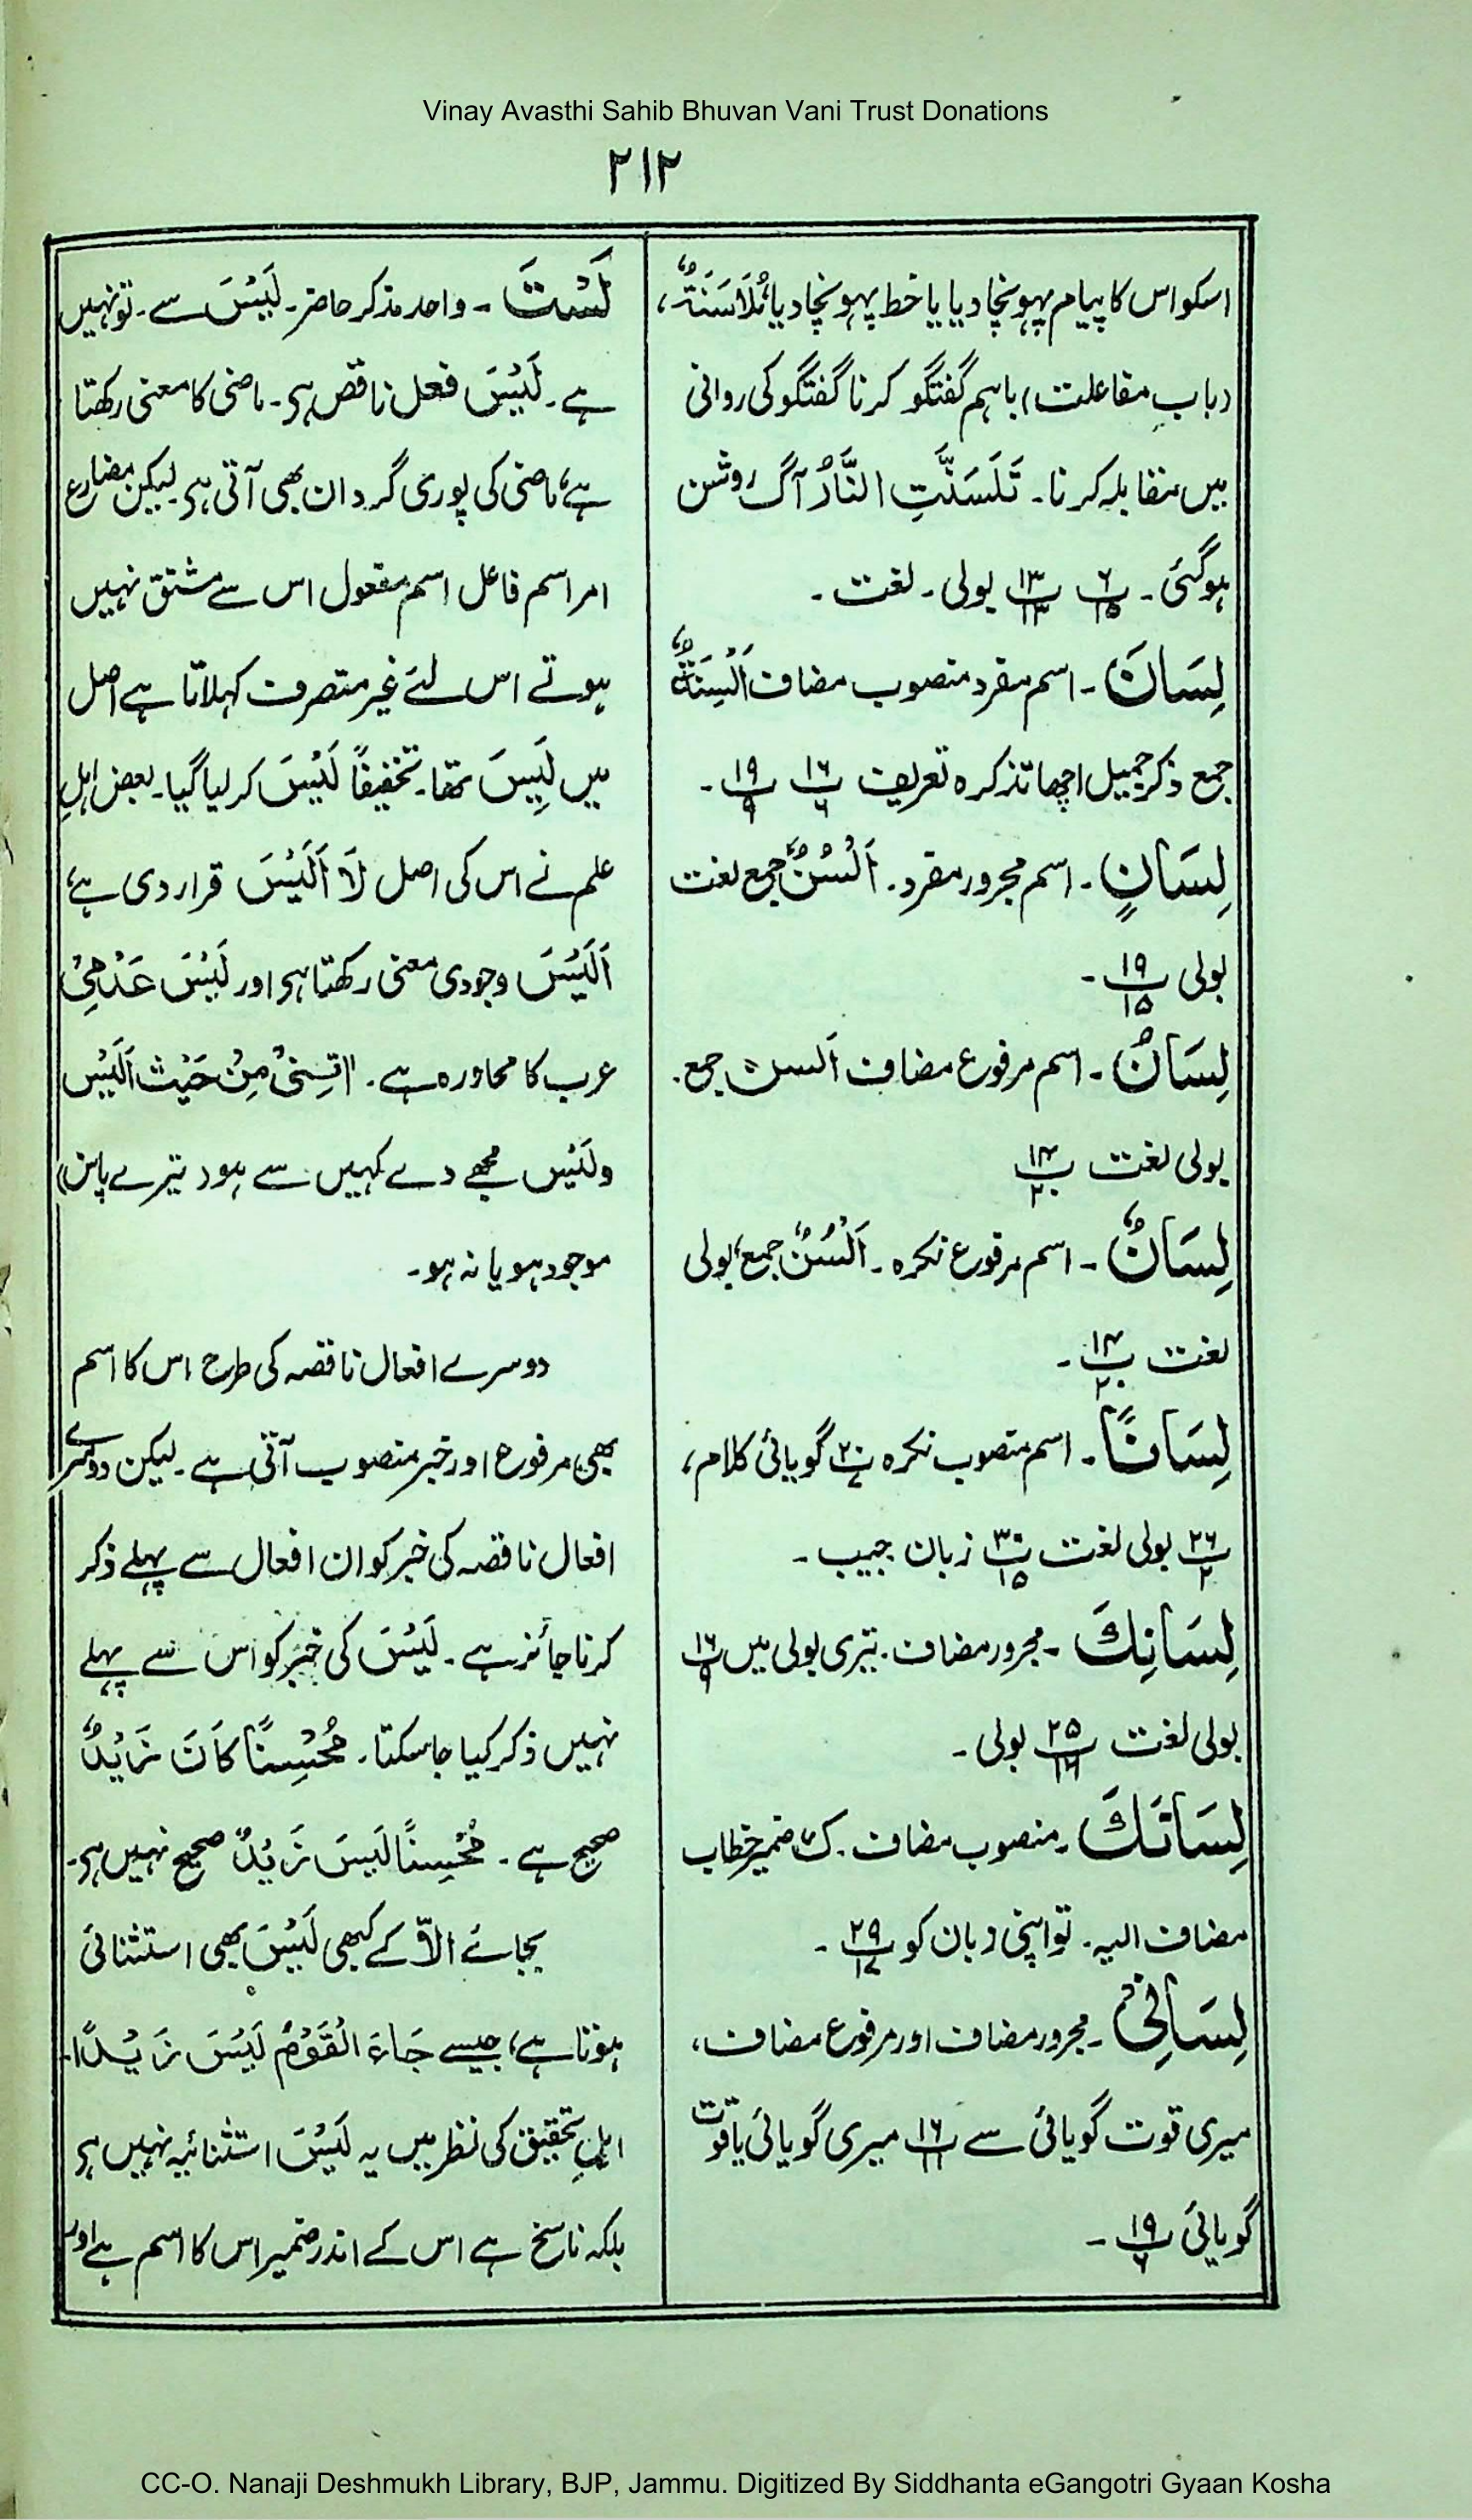 Vinay Avasthi Sahib Bhuvan Vani Trust Donations
۲۱۲
اسکو اس کا پیام پہونچا دیا یا خط پہونچا دیا مُلَاسَنَةٌ،
(بابِ مفاعلت) باہم گفتگو کرنا گفتگو کی روانی
میں مقابلہ کرنا۔ تَلَسَنَّتِ النَّارُ آگ روشن
ہوگئی۔ ۶/۱۵ پ ۱۳/۱۳ پ بولی۔ لغت۔
لِسَانَ۔ اسم مفرد منصوب مضاف اَلْسِنَةٌ
جمع ذکر جمیل اچھا تذکرہ تعریف ۱۶/۶ پ ۱۹/۹ پ۔
لِسَانٍ۔ اسم مجرور مفرد۔ اَلْسُنٌ جمع لغت
بولی ۱۹/۱۵ پ۔
لِسَانُ۔ اسم مرفوع مضاف اَلسن جمع۔
بولی لغت ۱۴/۲۰ پ
لِسَانٌ۔ اسم مرفوع نکرہ۔ اَلْسُنٌ جمع، بولی
لغت ۱۴/۲۰ پ۔
لِسَانًا۔ اسم منصوب نکرہ گویائی کلام،
۲۶/۲ پ بولی لغت ۳۰/۱۵ پ زبان جیب۔
لِسَانِكَ۔ مجرور مضاف۔ تیری بولی میں ۱۶/۹ پ
بولی لغت ۲۵/۱۶ پ بولی۔
لِسَانَكَ۔ منصوب مضاف۔ كَ ضمیر خطاب
مضاف الیہ۔ تو اپنی زبان کو ۲۹/۱۷ پ۔
لِسَانِیْ۔ مجرور مضاف اور مرفوع مضاف،
میری قوت گویائی سے ۱۶/۱۱ پ میری گویائی یا قوت
گویائی ۱۹/۶ پ۔
لَسْتَ۔ واحد مذکر حاضر۔ لَیْسَ سے۔ تو نہیں
ہے۔ لَیْسَ فعل ناقص ہی۔ ماضی کا معنی رکھتا
ہے، ماضی کی پوری گردان بھی آتی ہی۔ لیکن مضارع
امر اسم فاعل اسم مفعول اس سے مشتق نہیں
ہوتے اس لئے غیر متصرف کہلاتا ہے اصل
میں لَیِسَ تھا۔ تخفیفًا لَیْسَ کر لیا گیا۔ بعض اہلِ
علم نے اس کی اصل لَا اَلَیْسَ قرار دی ہے،
اَلَیْسَ وجودی معنی رکھتا ہی اور لَیْسَ عَدْمِیْ
عرب کا محاورہ ہے۔ اتِسِنیْ مِنْ حَیْث اَلَیْس
ولَیْس مجھے دے کہیں سے ہو (تیرے پاس)
موجود ہو یا نہ ہو۔
دوسرے افعال ناقصہ کی طرح اس کا اسم
بھی مرفوع اور خبر منصوب آتی ہے۔ لیکن دوسرے
افعال ناقصہ کی خبر کو ان افعال سے پہلے ذکر
کرنا جائز ہے۔ لَیْسَ کی خبر کو اس سے پہلے
نہیں ذکر کیا جاسکتا۔ مُحْسِنًا کَانَ زَیْدٌ
صحیح ہے۔ مُحْسِنًا لَیسَ زَیْدٌ صحیح نہیں ہی۔
بجائے الّا کے کبھی لَیْسَ بھی استثنائی
ہوتا ہے، جیسے جَاءَ الْقَوْمُ لَیْسَ زَیْدًا۔
اہلِ تحقیق کی نظر میں یہ لَیْسَ استثنائیہ نہیں ہی
بلکہ ناسخ ہے اس کے اندر ضمیر اس کا اسم ہے اور
CC-O. Nanaji Deshmukh Library, BJP, Jammu. Digitized By Siddhanta eGangotri Gyaan Kosha